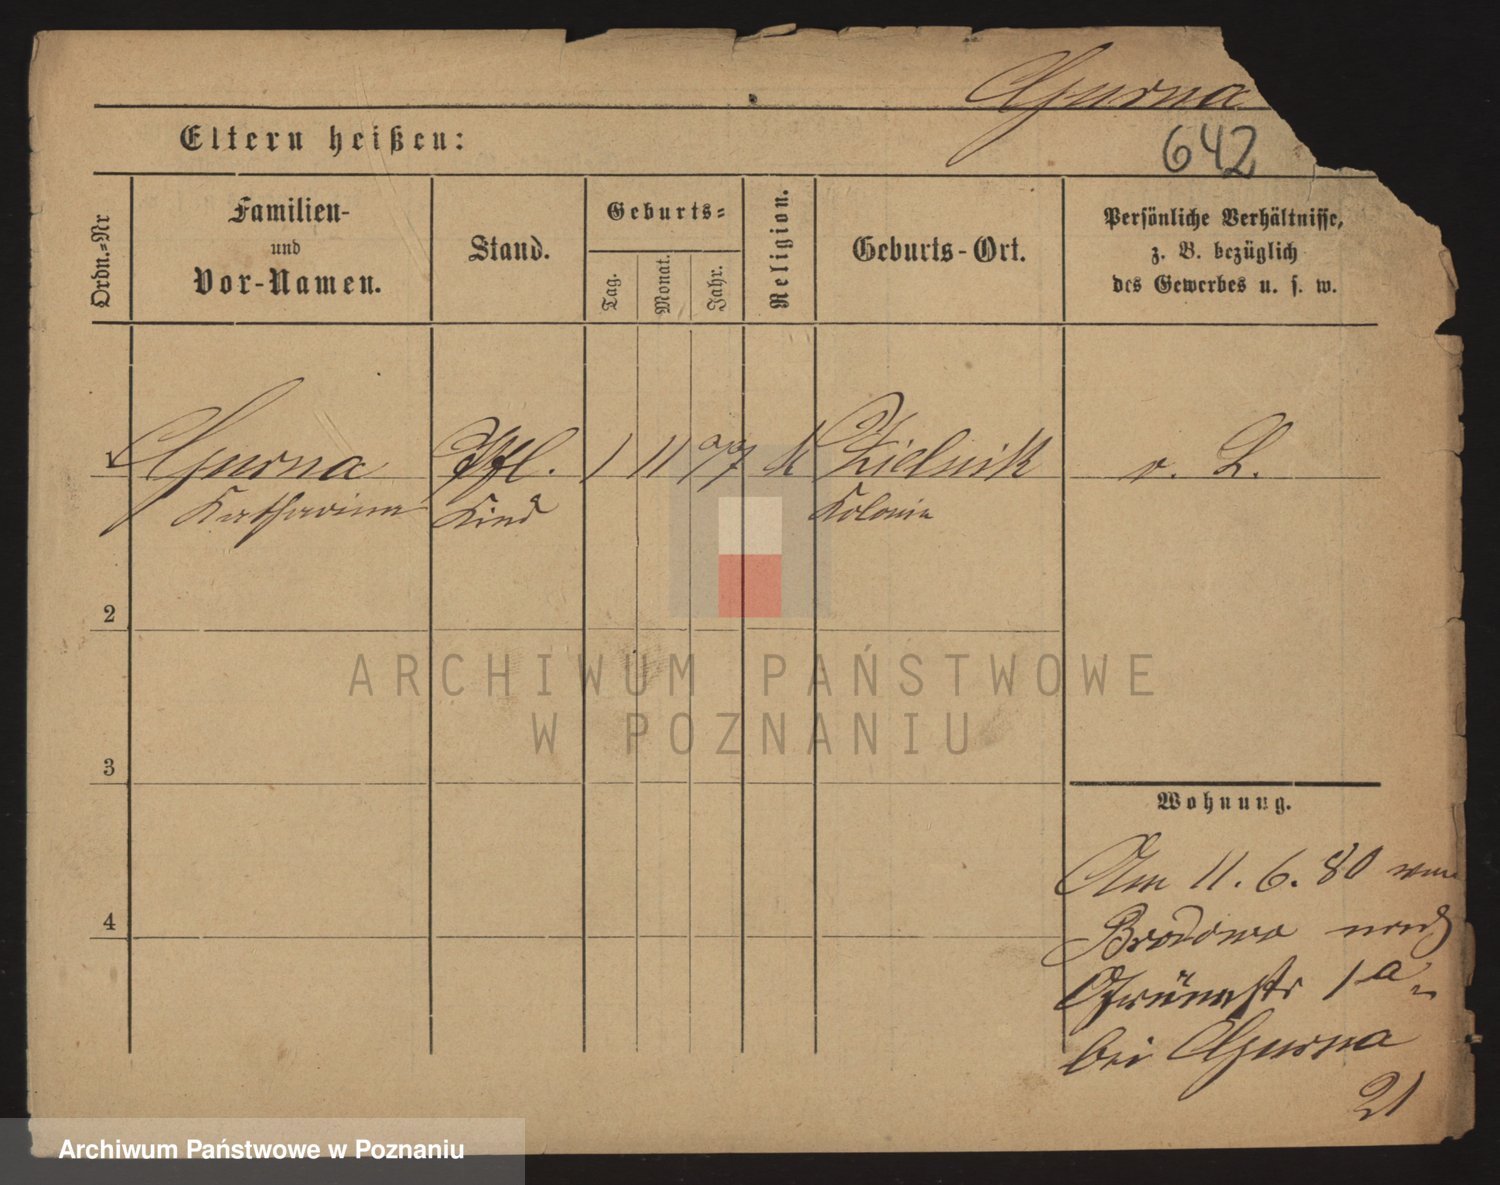 Gurna
642
Eltern heißen:
Ordn.=Nr
Familien-
und
Vor-Namen.
Stand.
Geburts=
Tag.
Monat.
Jahr.
Religion.
Geburts-Ort.
Persönliche Verhältnisse,
z. B. bezüglich
des Gewerbes u. s. w.
1 Gurna Pfl. 1 11 77 k Zielnik v. L.
Katharina Kind Kolonie
2
3
4
Wohnung.
Am 11. 6. 80 von
Brodowo nach
Grünestr 1a
bei Gurna
21
ARCHIWUM PAŃSTWOWE
W POZNANIU
Archiwum Państwowe w Poznaniu